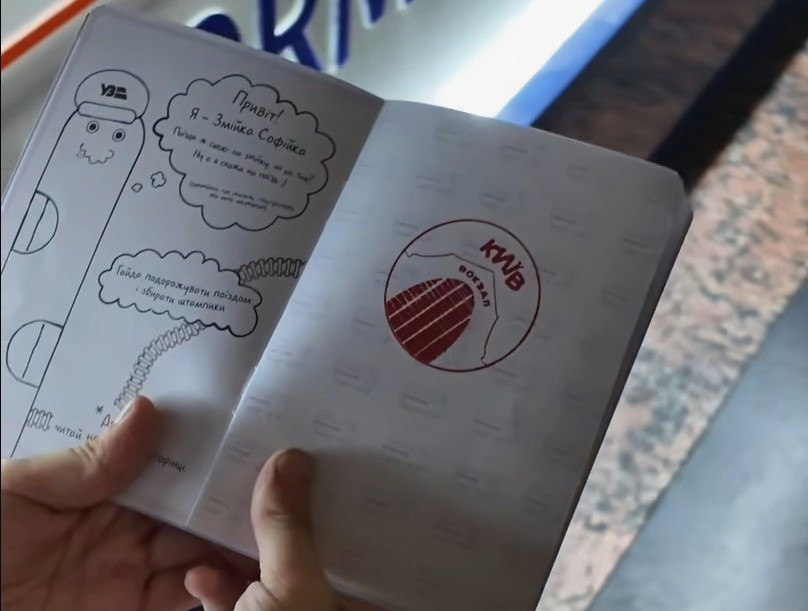 ORM
УЗ
Привіт!
Я - Змійка Софійка
Поїзд ж схожі на змійку, чи не так?
Ну а я схожа на поїзд!
Гайда подорожувати поїздом
і збирати штампики
*
читай на
КИЇВ
ВОКЗАЛ